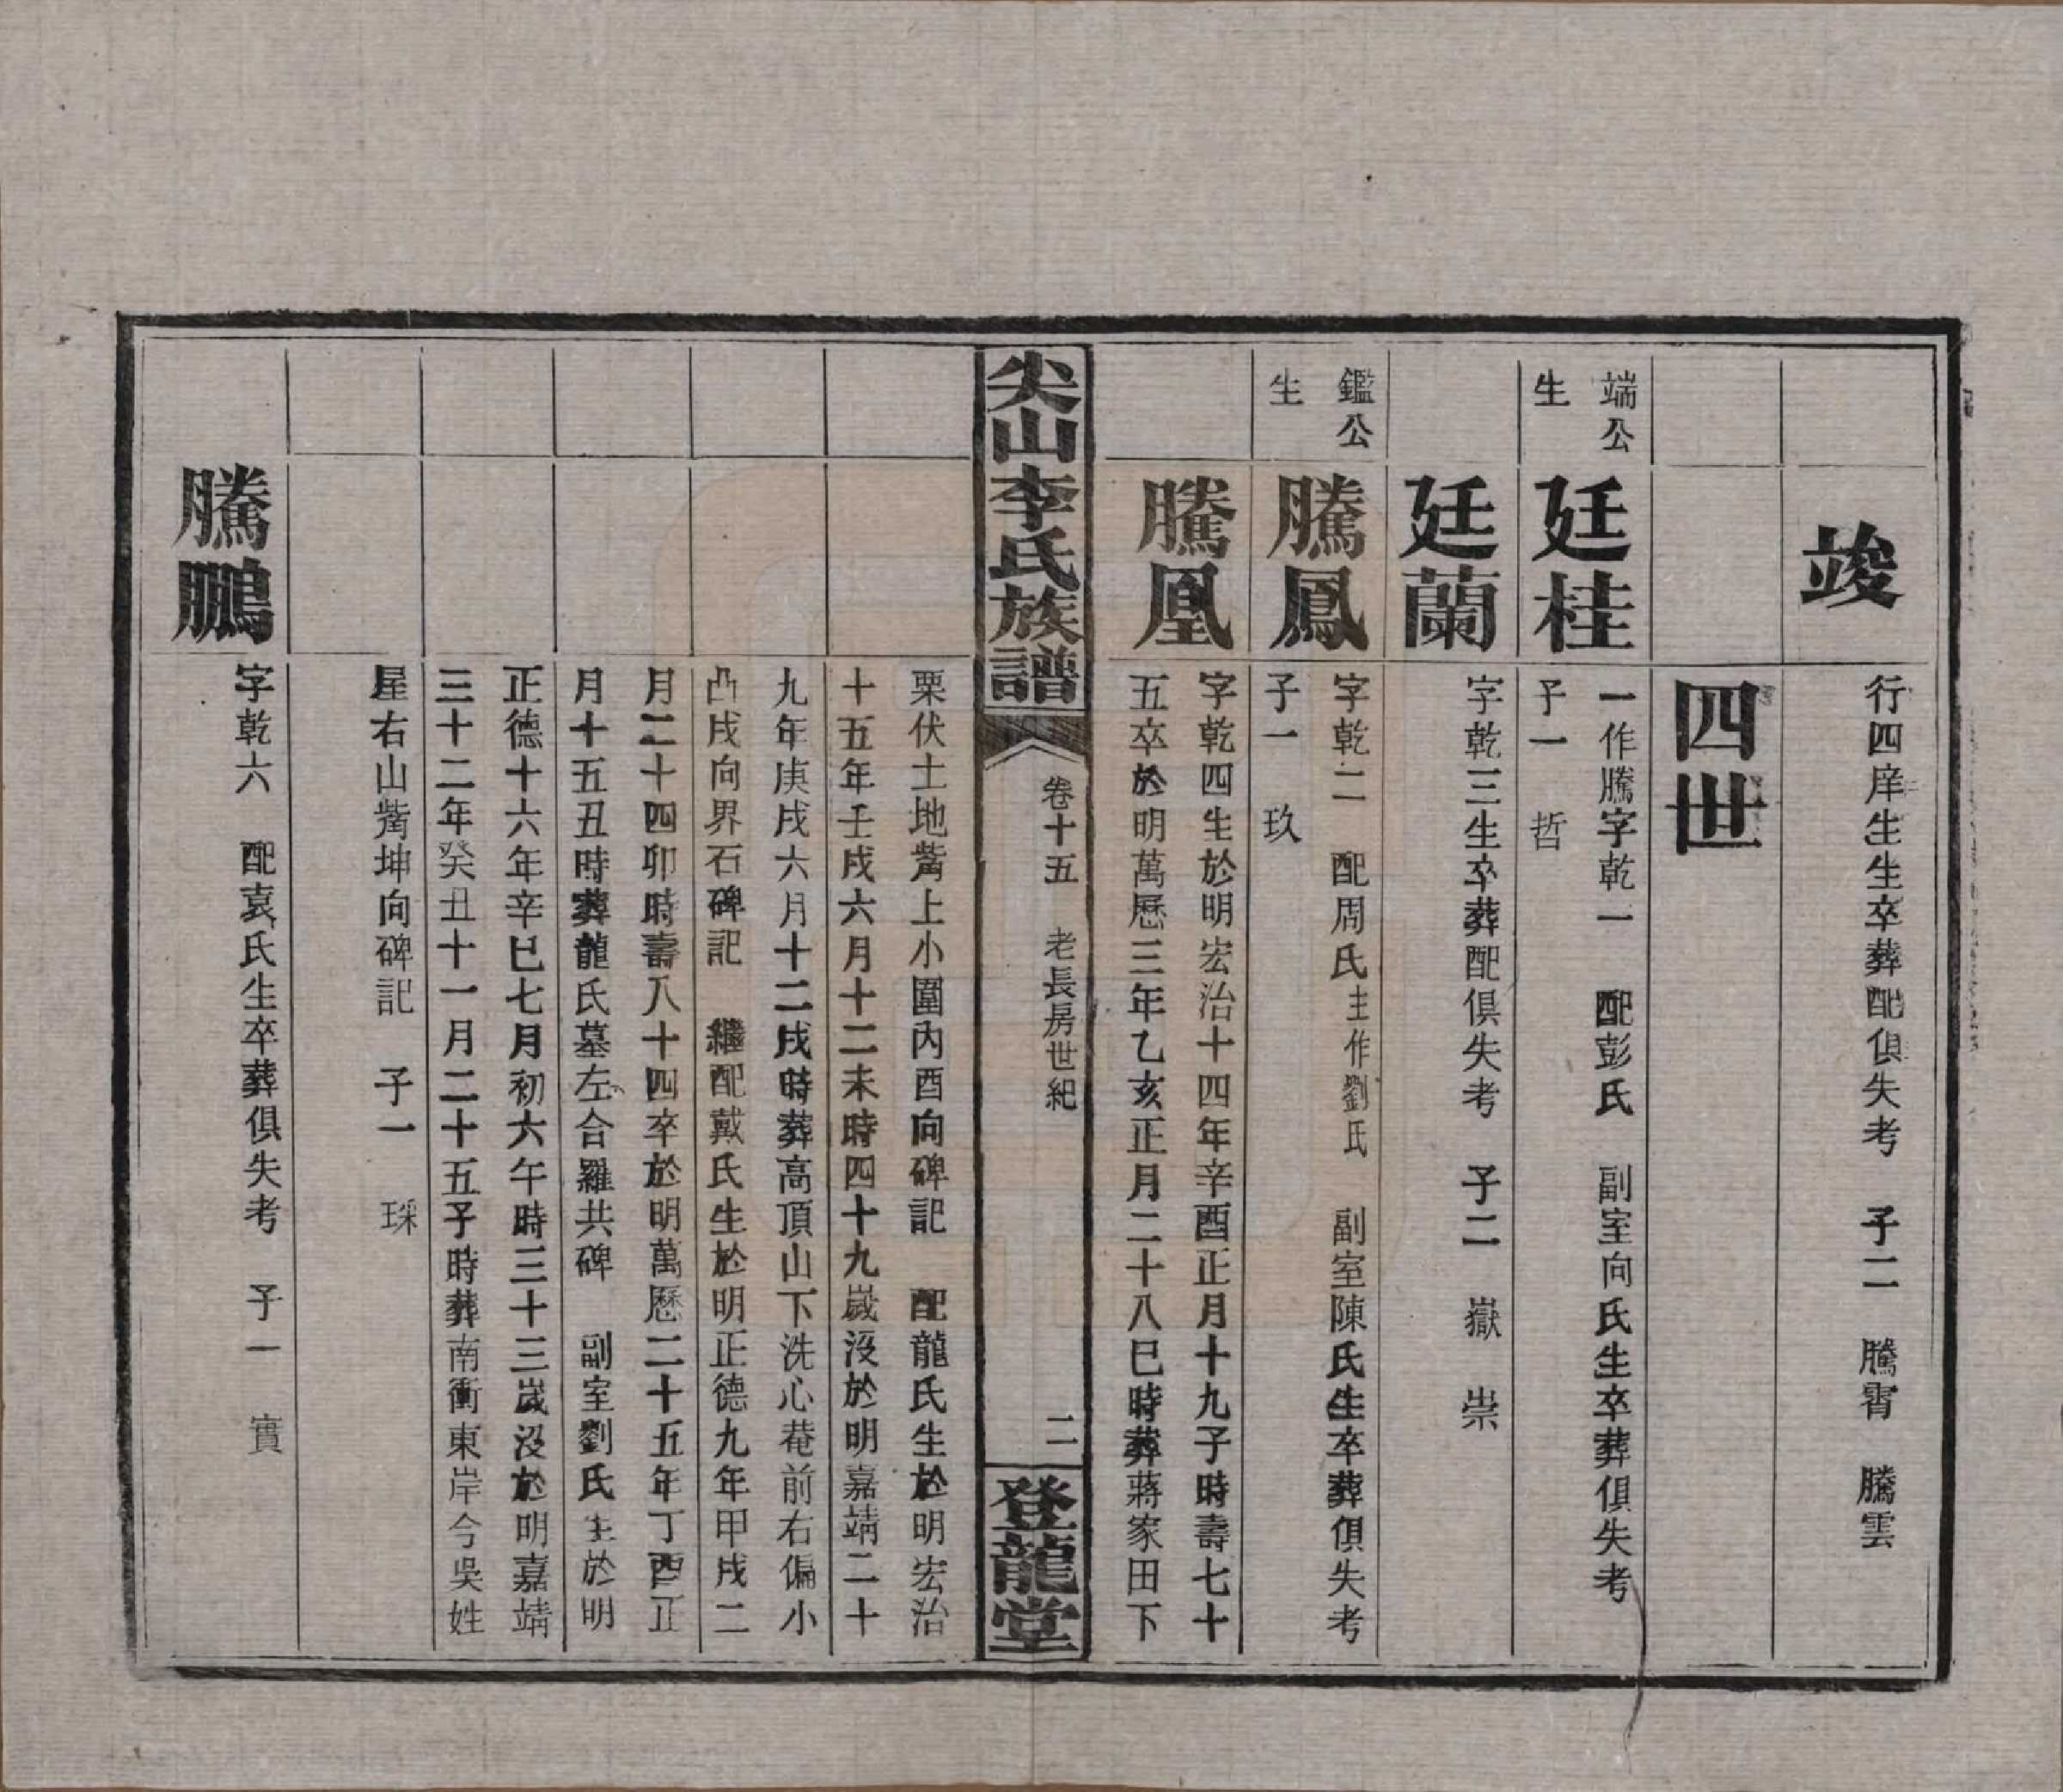 竣
行四庠生生卒葬配俱失考　子二　騰霄　騰雲
四世
端公
生
廷桂
一作騰字乾一　配彭氏　副室向氏生卒葬俱失考
子一　哲
廷蘭
字乾三生卒葬配俱失考　子二　嶽　崇
鑑公
生
騰鳳
字乾二　配周氏主作劉氏　副室陳氏生卒葬俱失考
子一　玖
騰凰
字乾四生於明宏治十四年辛酉正月十九子時壽七十
五卒於明萬曆三年乙亥正月二十八巳時葬蔣家田下
尖山李氏族譜
卷十五　老長房世紀
二
登龍堂
栗伏土地觜上小圍內酉向碑記　配龍氏生於明宏治
十五年壬戌六月十二未時四十九歲沒於明嘉靖二十
九年庚戌六月十二戌時葬高頂山下洗心菴前右偏小
凸戌向界石碑記　繼配戴氏生於明正德九年甲戌二
月二十四卯時壽八十四卒於明萬曆二十五年丁酉正
月十五丑時葬龍氏墓左合羅共碑　副室劉氏生於明
正德十六年辛巳七月初六午時三十三歲沒於明嘉靖
三十二年癸丑十一月二十五子時葬南衝東岸今吳姓
屋右山觜坤向碑記　子一　琛
騰鵬
字乾六　配袁氏生卒葬俱失考　子一　實